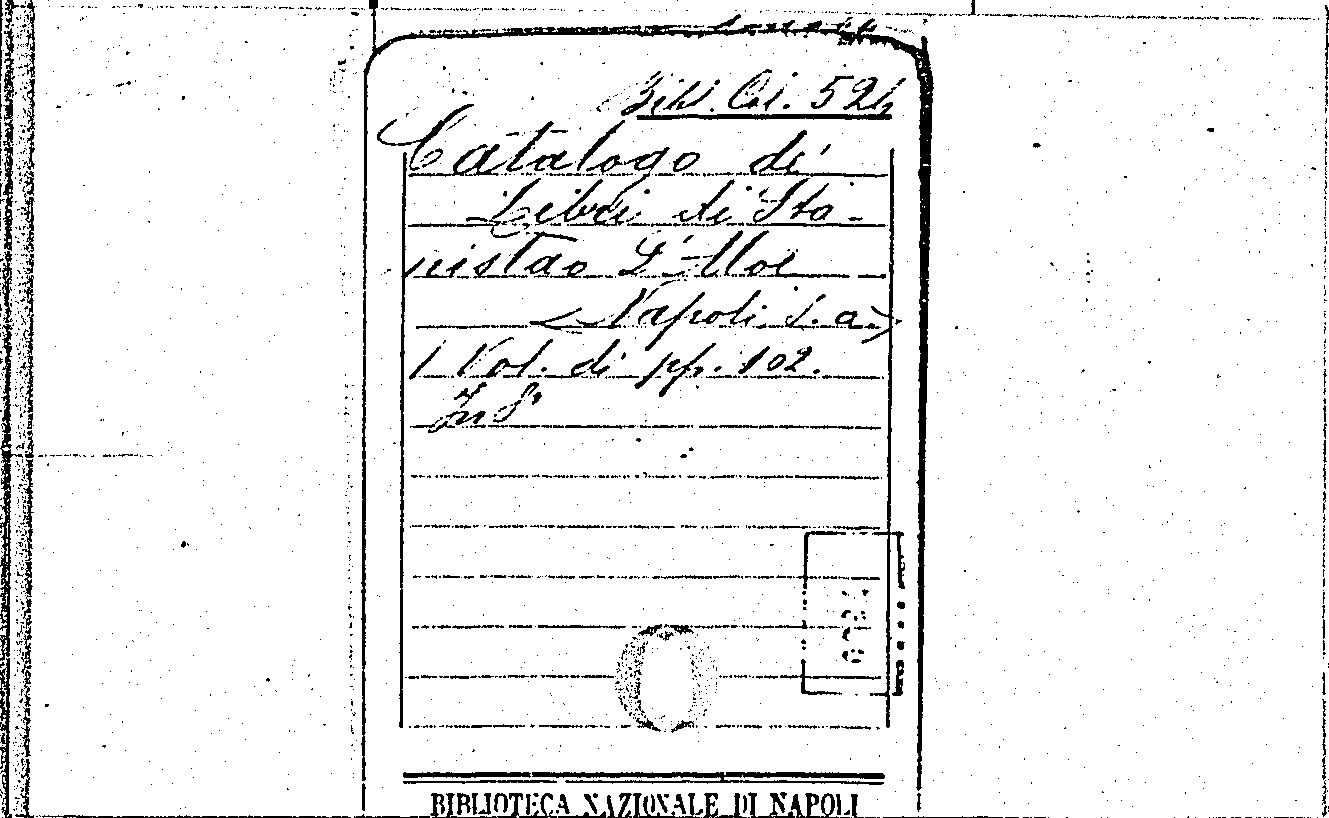 Bibl. Cat. 524
Catalogo di
Libri di Sta-
nislao D'Aloe
<Napoli. s. a.>
1 Vol. di pp. 102.
In 8°
BIBLIOTECA NAZIONALE DI NAPOLI